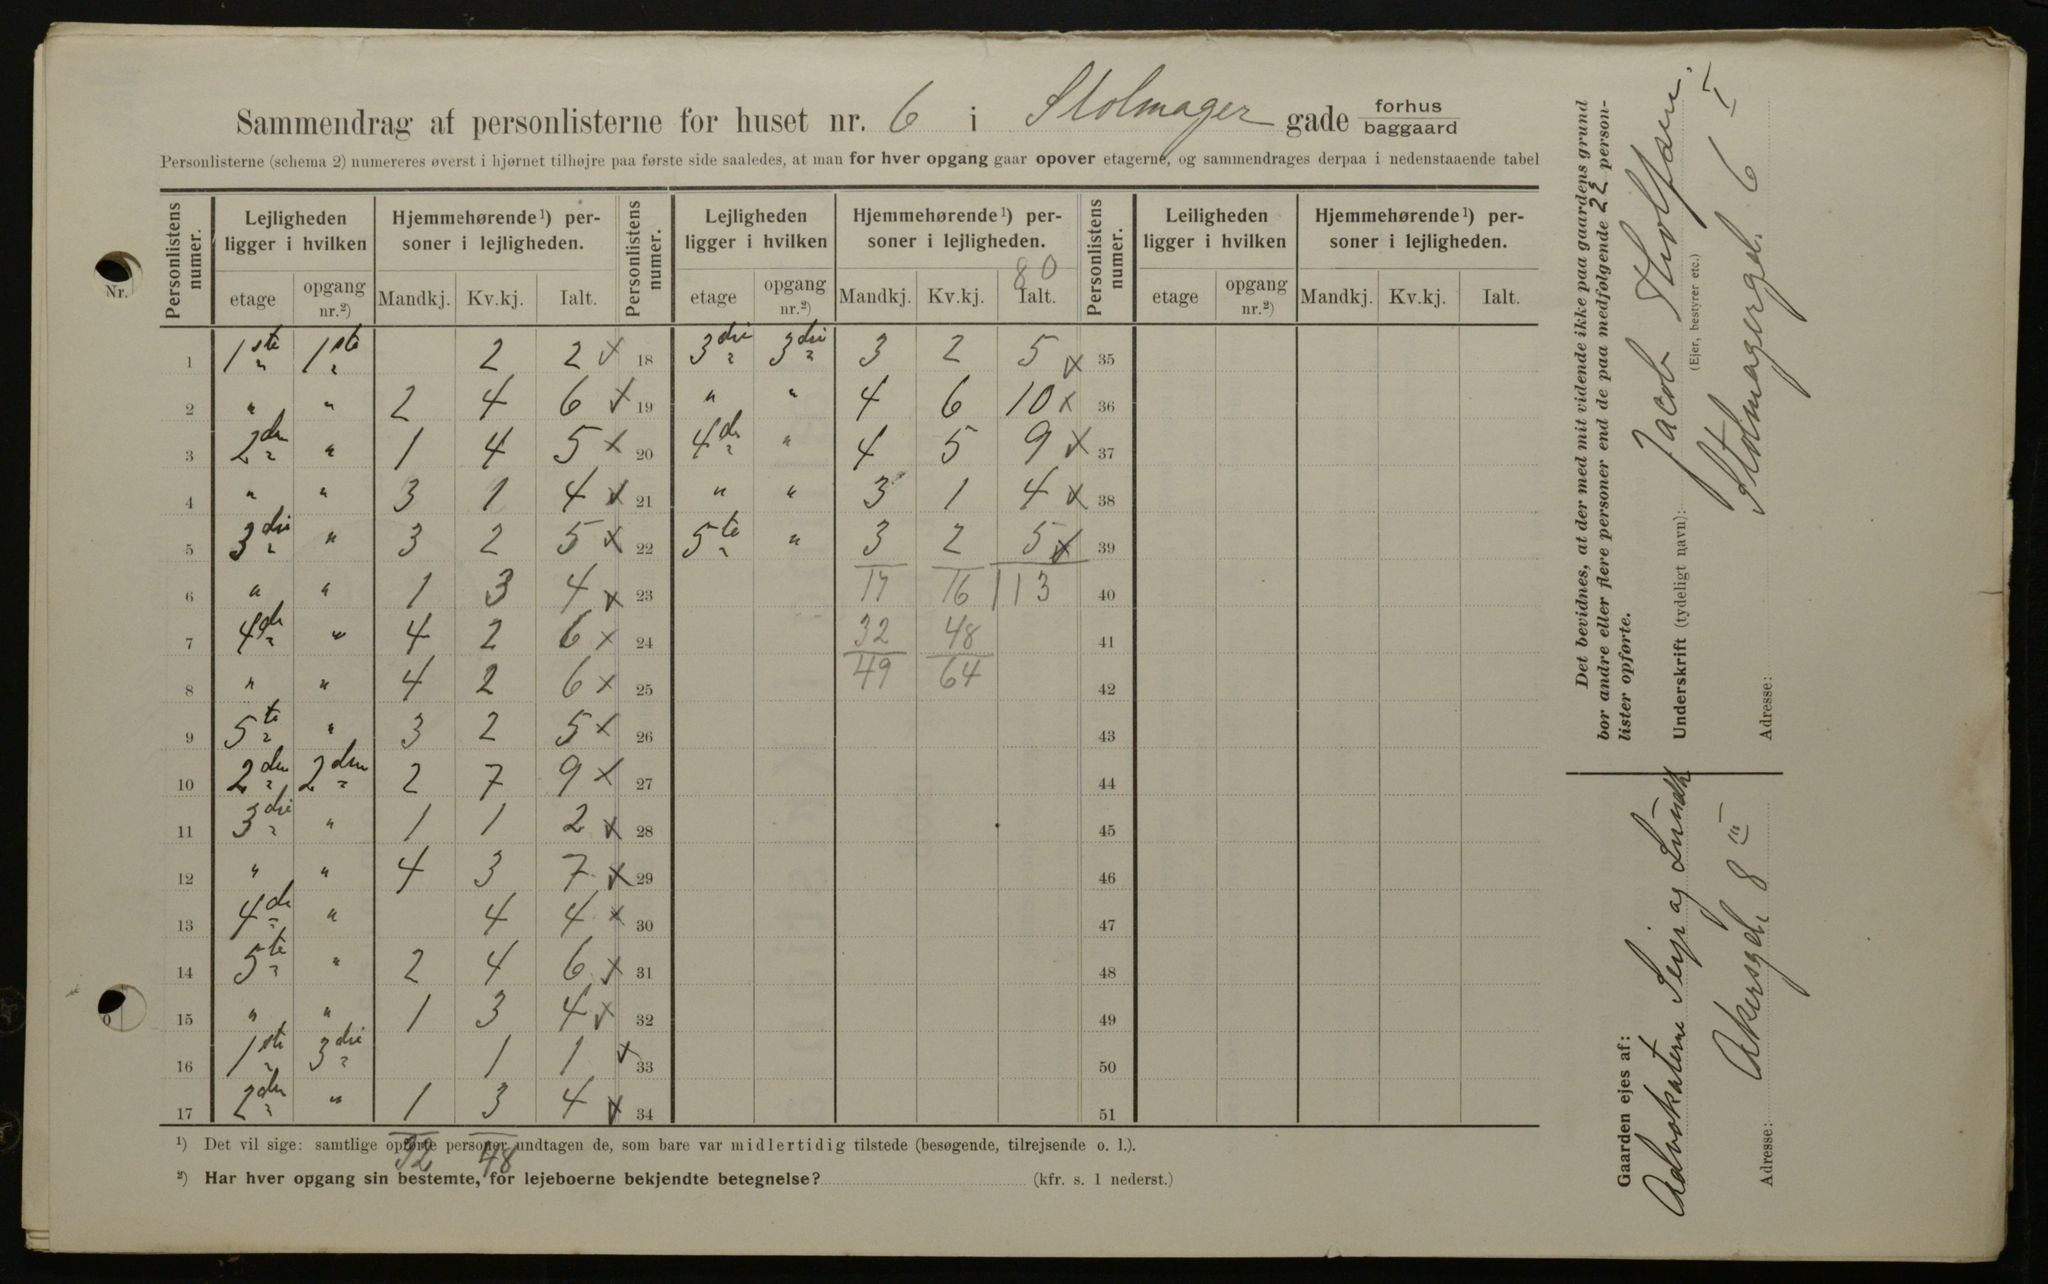 Sammendrag af personlisterne for huset nr. 6 i Stolmager gade forhus
baggaard
Personlisterne (schema 2) numereres øverst i hjørnet tilhøjre paa første side saaledes, at man for hver opgang gaar opover etagerne, og sammendrages derpaa i nedenstaaende tabel
Nr.
Personlistens numer. Lejligheden ligger i hvilken Hjemmehørende ¹) personer i lejligheden. Personlistens numer. Lejligheden ligger i hvilken Hjemmehørende ¹) personer i lejligheden. Personlistens numer. Leiligheden ligger i hvilken Hjemmehørende ¹) personer i lejligheden.
80
etage opgang nr.²) Mandkj. Kv.kj. Ialt. etage opgang nr.²) Mandkj. Kv.kj. Ialt. etage opgang nr.²) Mandkj. Kv.kj. Ialt.
1 1ste 1ste 2 2 x 18 3die 3die 3 2 5 x 35
2 " " 2 4 6 x 19 " " 4 6 10 x 36
3 2den " 1 4 5 x 20 4de " 4 5 9 x 37
4 " " 3 1 4 x 21 " " 3 1 4 x 38
5 3die " 3 2 5 x 22 5te " 3 2 5 x 39
6 " " 1 3 4 x 23 17 16 113 40
7 4de " 4 2 6 x 24 32 48 41
8 " " 4 2 6 x 25 49 64 42
9 5te " 3 2 5 x 26 43
10 2den 2den 2 7 9 x 27 44
11 3die " 1 1 2 x 28 45
12 " " 4 3 7 x 29 46
13 4de " 4 4 x 30 47
14 5te " 2 4 6 x 31 48
15 " " 1 3 4 x 32 49
16 1ste 3die 1 1 x 33 50
17 2den " 1 3 4 x 34 51
32 48
¹) Det vil sige: samtlige opførte personer undtagen de, som bare var midlertidig tilstede (besøgende, tilrejsende o. l.).
²) Har hver opgang sin bestemte, for lejeboerne bekjendte betegnelse? (kfr. s. 1 nederst.)
Det bevidnes, at der med mit vidende ikke paa gaardens grund
bor andre eller flere personer end de paa medfølgende 22 person-
lister opførte.
Underskrift (tydeligt navn): Jacob Tholfsen
(Ejer, bestyrer etc.)
Adresse: Stolmagergd. 6 I
Gaarden ejes af:
Advokaterne og
Adresse: Akersgd. 8 III